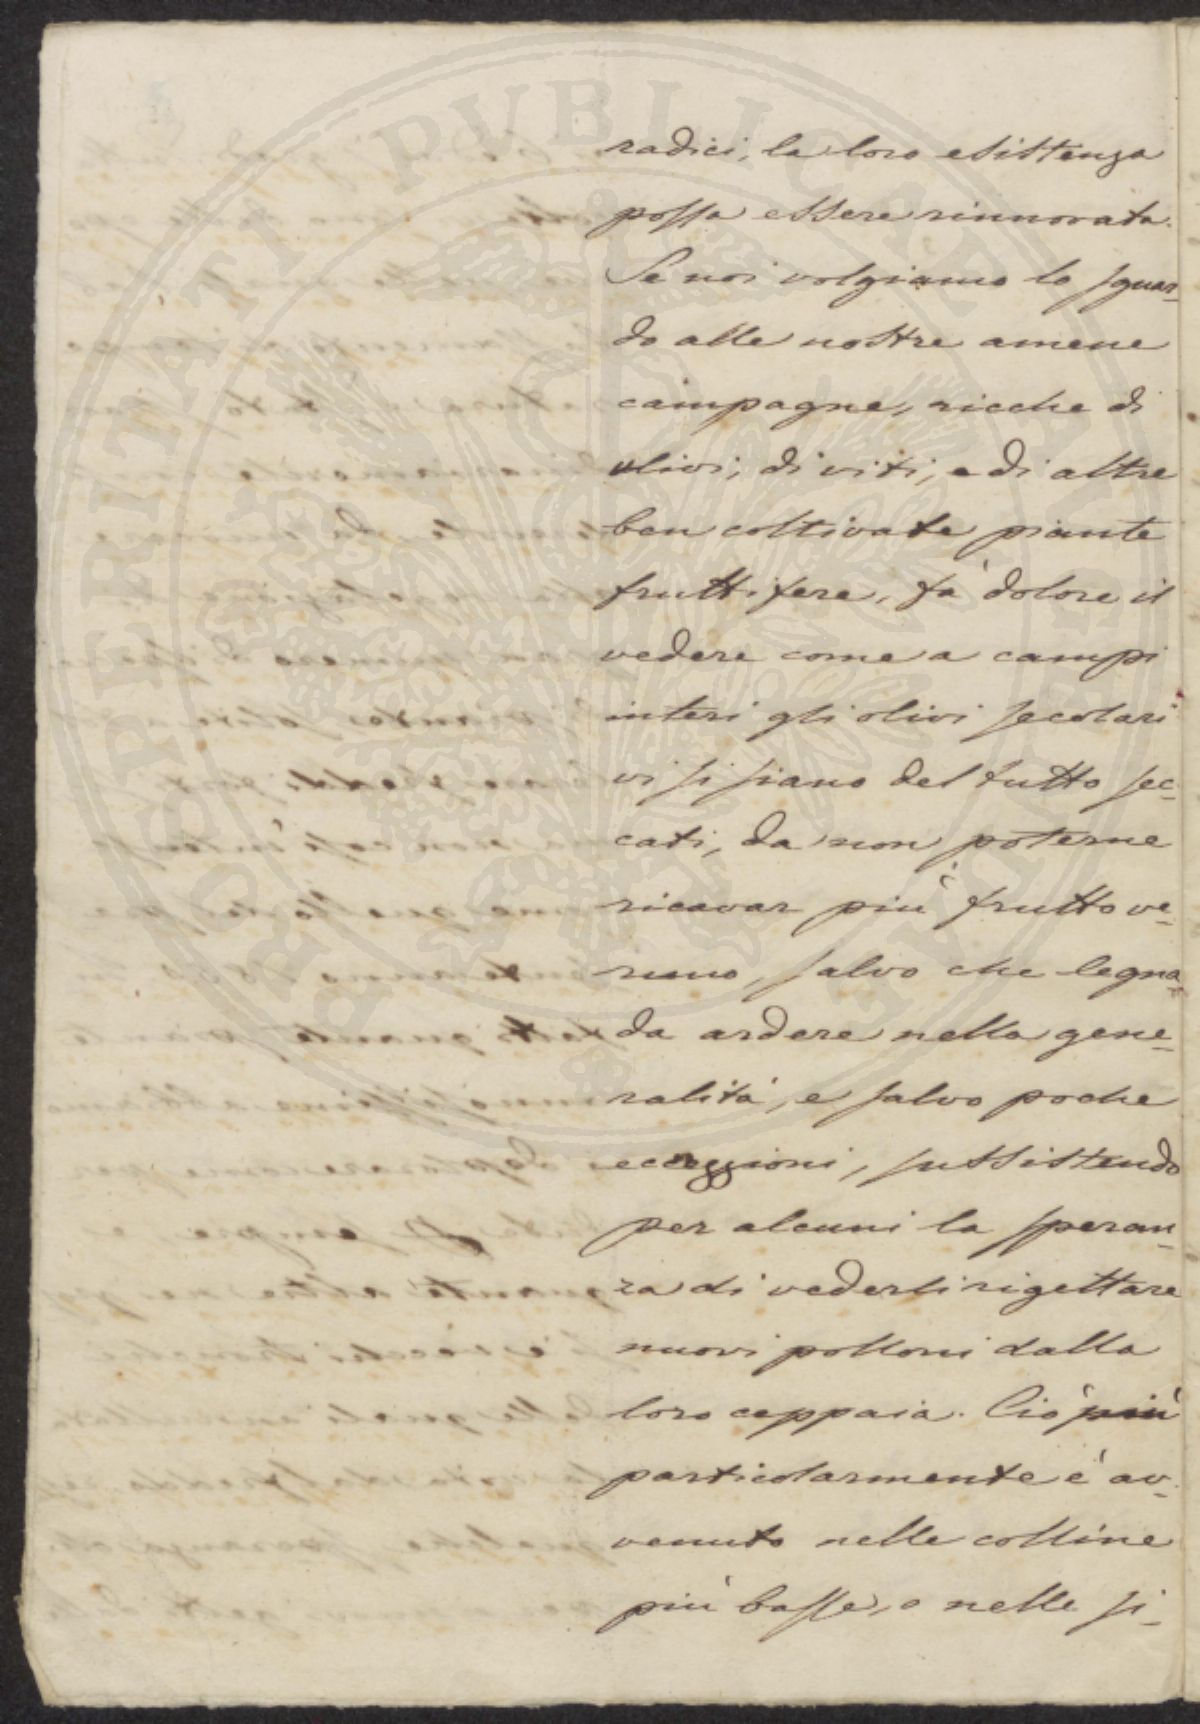 PROSPERITATI PUBLICAE AUGENDAE
radici, la loro esistenza
possa essere rinnovata.
Se noi volgiamo lo sguar-
do alle nostre amene
campagne, ricche di
olivi, di viti, e di altre
ben coltivate piante
fruttifere, fà dolore il
vedere come a campi
interi gli olivi secolari
vi si siano del tutto sec-
cati, da non poterne
ricavar più frutto ve-
runo, salvo che legna
da ardere nella gene-
ralità, e salvo poche
eccezzioni, sussistendo
per alcuni la speran-
za di vederli rigettare
nuovi polloni dalla
loro ceppaia. Ciò più
particolarmente è av-
venuto nelle colline
più basse, e nelle si-